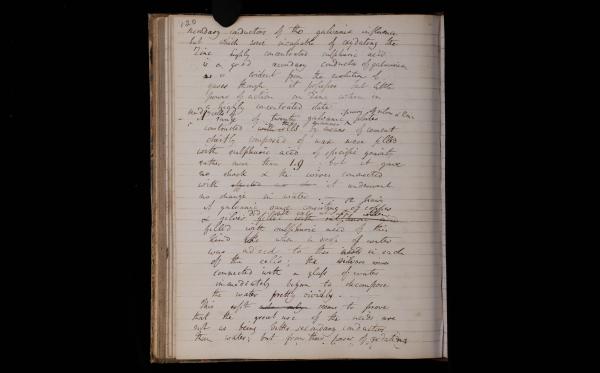 120
secondary conductors of the galvanic influence
but which were incapable of oxydating the
Zinc highly concentrated sulphuric acid
is a good secondary conductor of galvanism
as is evident from the evolution of
gases though it possesses but little
power of action on Zinc when in
a highly concentrated state
of twenty galvanic plates
constructed with cells by means of cement
chiefly composed of wax were filled
with sulphuric acid of specific gravity
rather more than 1.9; but it gave
no shock & the wires connected
with it underwent
no change in water. —
A galvanic consisting of copper
& silver filled with
filled with sulphuric acid of this
kind when a of water
was added to the in each
of the cells; the silver
connected with a glass of water
immediately began to decompose
the water pretty vividly. —
This seem to prove
that the great use of the acids are
not as being better secondary conductors
than water; but from their power of oxydating